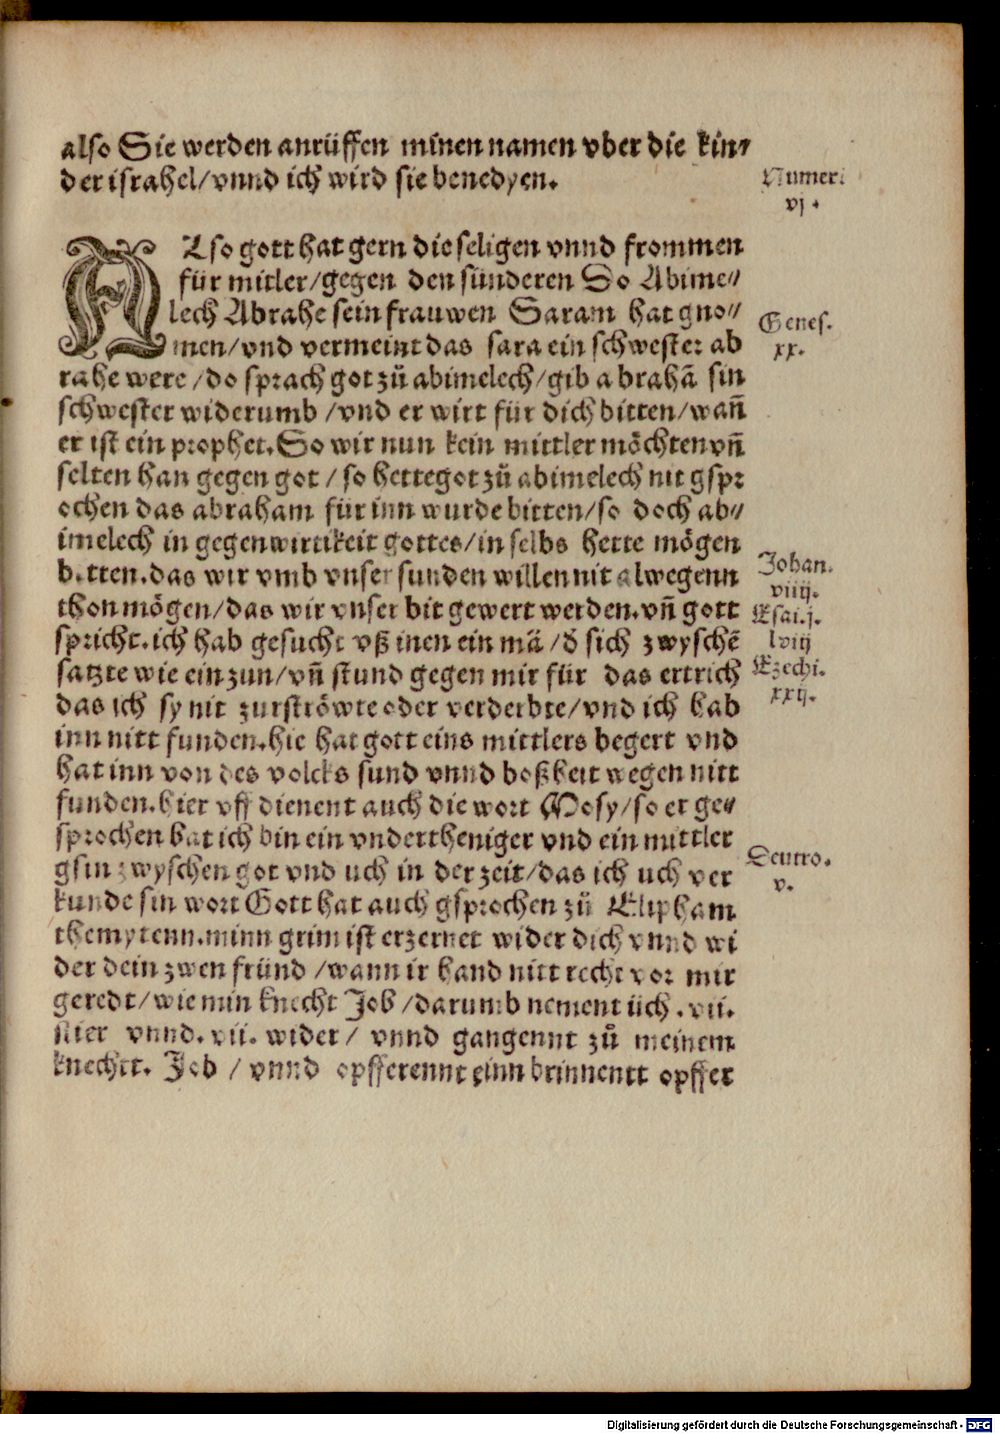 also Sie werden anrüffen minen namen vber die kin⸗
der israhel/vnnd ich wird sie benedyen.
Numer.
vj.
ALso gott hat gern die seligen vnnd frommen
für mitler/gegen den sünderen So Abime⸗
lech Abrahe sein frauwen Saram hat gno⸗
men/vnd vermeint das sara ein schwester ab
Genes.
xx.
rahe were/do sprach got zů abimelech/gib abrahā sin
schwester widerumb/vnd er wirt für dich bitten/wañ
er ist ein prophet. So wir nun kein mittler möchten vñ
selten han gegen got/so hette got zů abimelech nit gspr
ochen das abraham für inn wurde bitten/so doch ab⸗
imelech in gegenwirtikeit gottes/in selbs hette mögen
bitten. das wir vmb vnser sunden willen nit alwegenn
thon mögen/das wir vnser bit gewert werden. vñ gott
spricht. ich hab gesucht vß inen ein mā/ď sich zwyschē
satzte wie ein zun/vñ stund gegen mir für das ertrich
Johan.
viiij.
Esai.j.
lviij
Ezechi.
xxij.
das ich sy nit zurströwte oder verderbte/vnd ich hab
inn nitt funden. hie hat gott eins mittlers begert vnd
hat inn von des volcks sund vnnd boßheit wegen nitt
funden. hier vff dienent auch die wort Mosy/so er ge⸗
sprochen hat ich bin ein vndertheniger vnd ein mittler
gsin zwyschen got vnd uch in der zeit/das ich uch ver
Deutro.
v.
kunde sin wort Gott hat auch gsprochen zů Elipham
themytenn. minn grim ist erzernet wider dich vnnd wi
der dein zwen fründ/wann ir hand nitt recht vor mir
geredt/wie min knecht Job/darumb nement üch. vii.
stier vnnd. vii. wider/ vnnd gangennt zů meinem
knechtt. Job / vnnd opfferennt einn brinnentt opffer
Digitalisierung gefördert durch die Deutsche Forschungsgemeinschaft - DFG